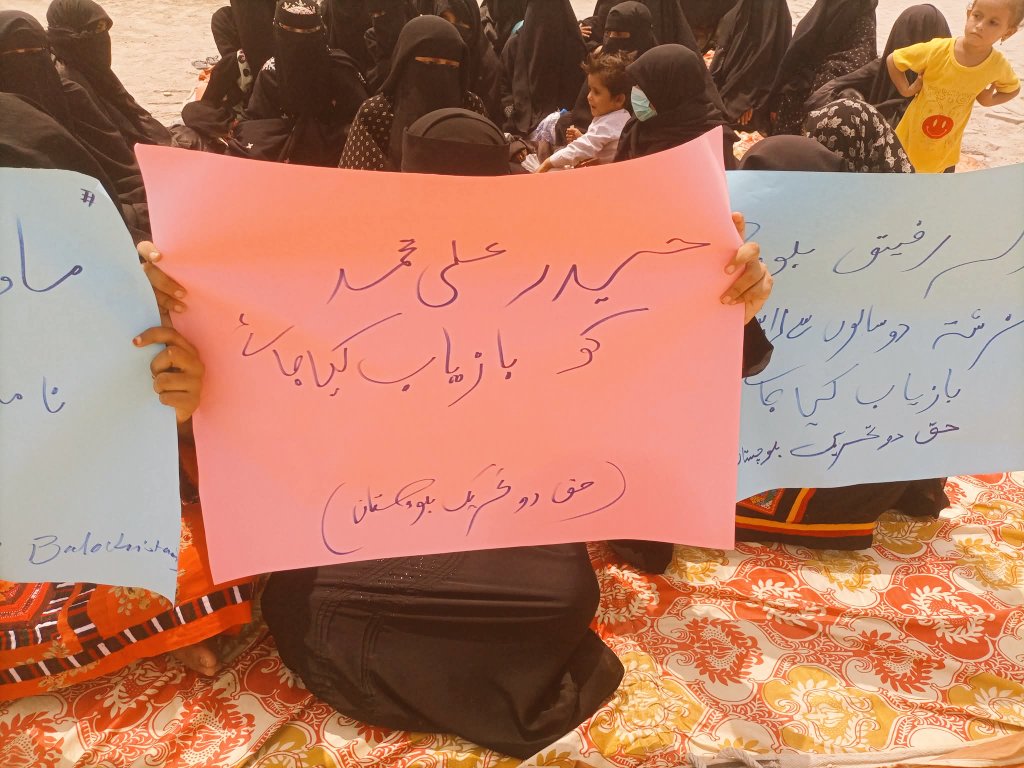 #
ما
نا
Balochistan
حیدر علی محمد
کو بازیاب کیا جائے
(حق دو تحریک بلوچستان)
رفیق بلو
دو سالوں سے
بازیاب کیا جا
حق دو تحریک بلوچستان